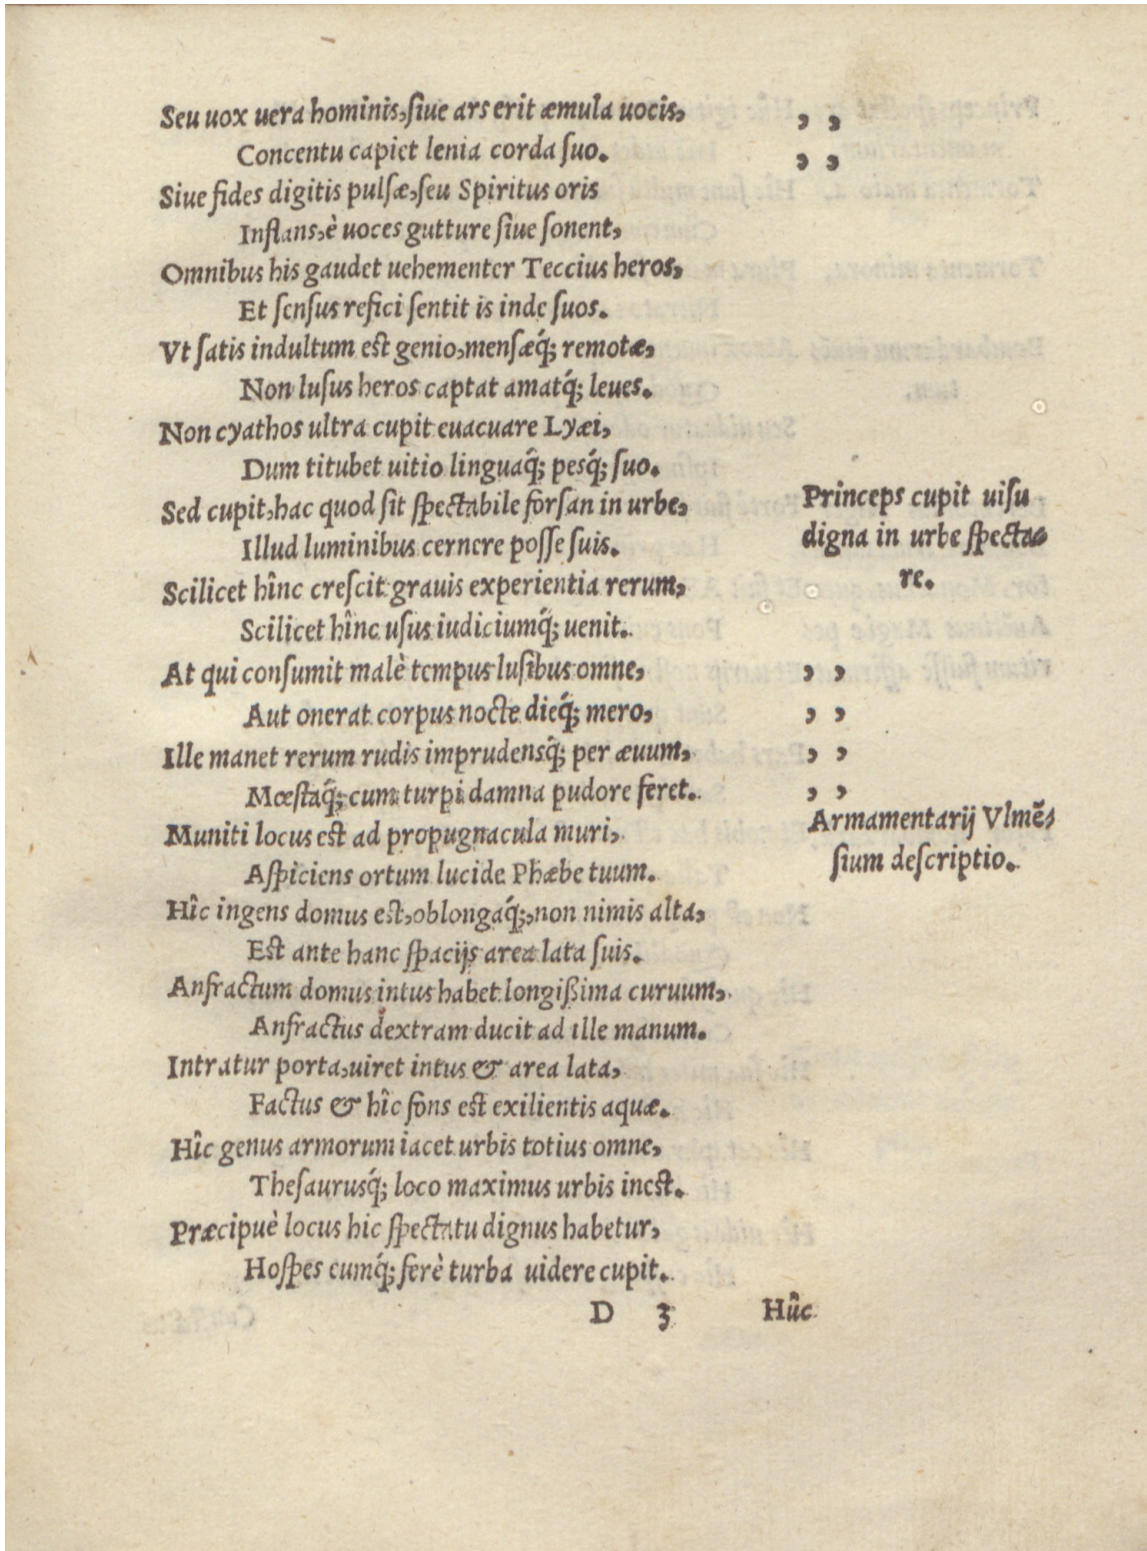 Seu uox uera hominis, siue ars erit æmula uocis, , ,
Concentu capiet lenia corda suo. , ,
Siue fides digitis pulsæ, seu Spiritus oris
Inflans, è uoces gutture siue sonent,
Omnibus his gaudet uehementer Teccius heros,
Et sensus refici sentit is inde suos.
Vt satis indultum est genio, mensæq́; remotæ,
Non lusus heros captat amatq́; leues.
Non cyathos ultra cupit euacuare Lyæi,
Dum titubet uitio linguaq̂; pesq́; suo.
Sed cupit, hac quod sit spectabile forsan in urbe,
Illud luminibus cernere posse suis.
Princeps cupit uisu
digna in urbe specta-
re.
Scilicet hînc crescit grauis experientia rerum,
Scilicet hînc usus iudiciumq́; uenit.
At qui consumit malè tempus lusibus omne, , ,
Aut onerat corpus nocte dieq́; mero, , ,
Ille manet rerum rudis imprudensq̂; per æuum, , ,
Mœstaq̂; cum turpi damna pudore feret. , ,
Muniti locus est ad propugnacula muri,
Aspiciens ortum lucide Phæbe tuum.
Armamentarij Vlmẽ-
sium descriptio.
Hîc ingens domus est, oblongaq́;, non nimis alta,
Est ante hanc spacijs area lata suis.
Anfractum domus intus habet longißima curuum,
Anfractus dextram ducit ad ille manum.
Intratur porta, uiret intus & area lata,
Factus & hîc fons est exilientis aquæ.
Hîc genus armorum iacet urbis totius omne,
Thesaurusq́; loco maximus urbis inest.
Præcipuè locus hic spectatu dignus habetur,
Hospes cumq́; ferè turba uidere cupit.
D 3 Hûc